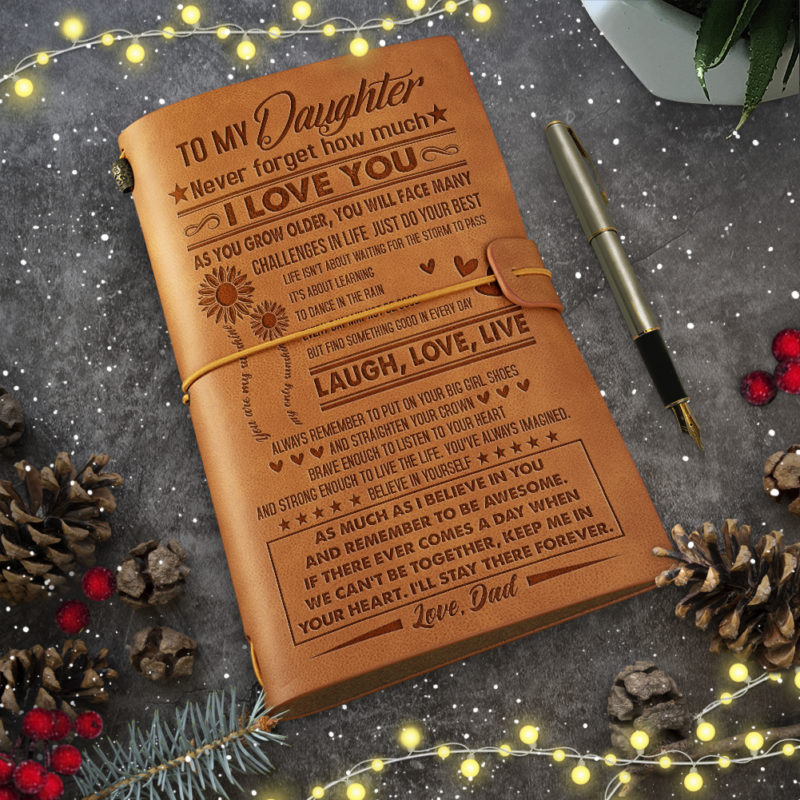 TO MY Daughter
Never forget how much
I LOVE YOU
AS YOU GROW OLDER, YOU WILL FACE MANY
CHALLENGES IN LIFE JUST DO YOUR BEST
LIFE ISN'T ABOUT WAITING FOR THE STORM TO PASS
IT'S ABOUT LEARNING
TO DANCE IN THE RAIN
EVERY DAY MAY NOT BE GOOD
BUT FIND SOMETHING GOOD IN EVERY DAY
LAUGH, LOVE, LIVE
you are my sunshine
my only sunshine
ALWAYS REMEMBER TO PUT ON YOUR BIG GIRL SHOES
AND STRAIGHTEN YOUR CROWN
BRAVE ENOUGH TO LISTEN TO YOUR HEART
AND STRONG ENOUGH TO LIVE THE LIFE. YOU'VE ALWAYS IMAGINED.
BELIEVE IN YOURSELF
AS MUCH AS I BELIEVE IN YOU
AND REMEMBER TO BE AWESOME.
IF THERE EVER COMES A DAY WHEN
WE CAN'T BE TOGETHER, KEEP ME IN
YOUR HEART. I'LL STAY THERE FOREVER.
Love, Dad